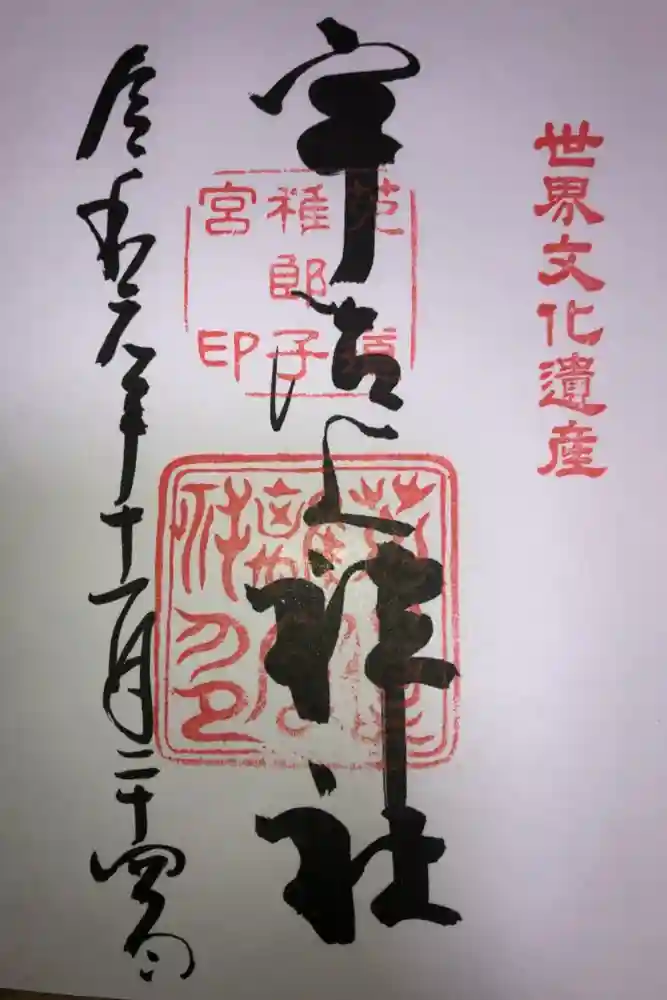 世界文化遺産
宇治上神社
菟道
稚郎子
宮印
令和元年十一月二十四日